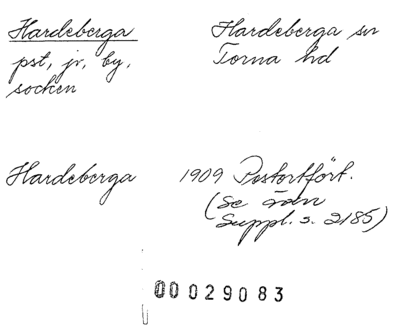 Hardeberga
pst, jr, by,
socken
Hardeberga sn
Torna hd
Hardeberga
1909 Postortfört.
(Se ädn
Suppl. s. 2185)
00029083